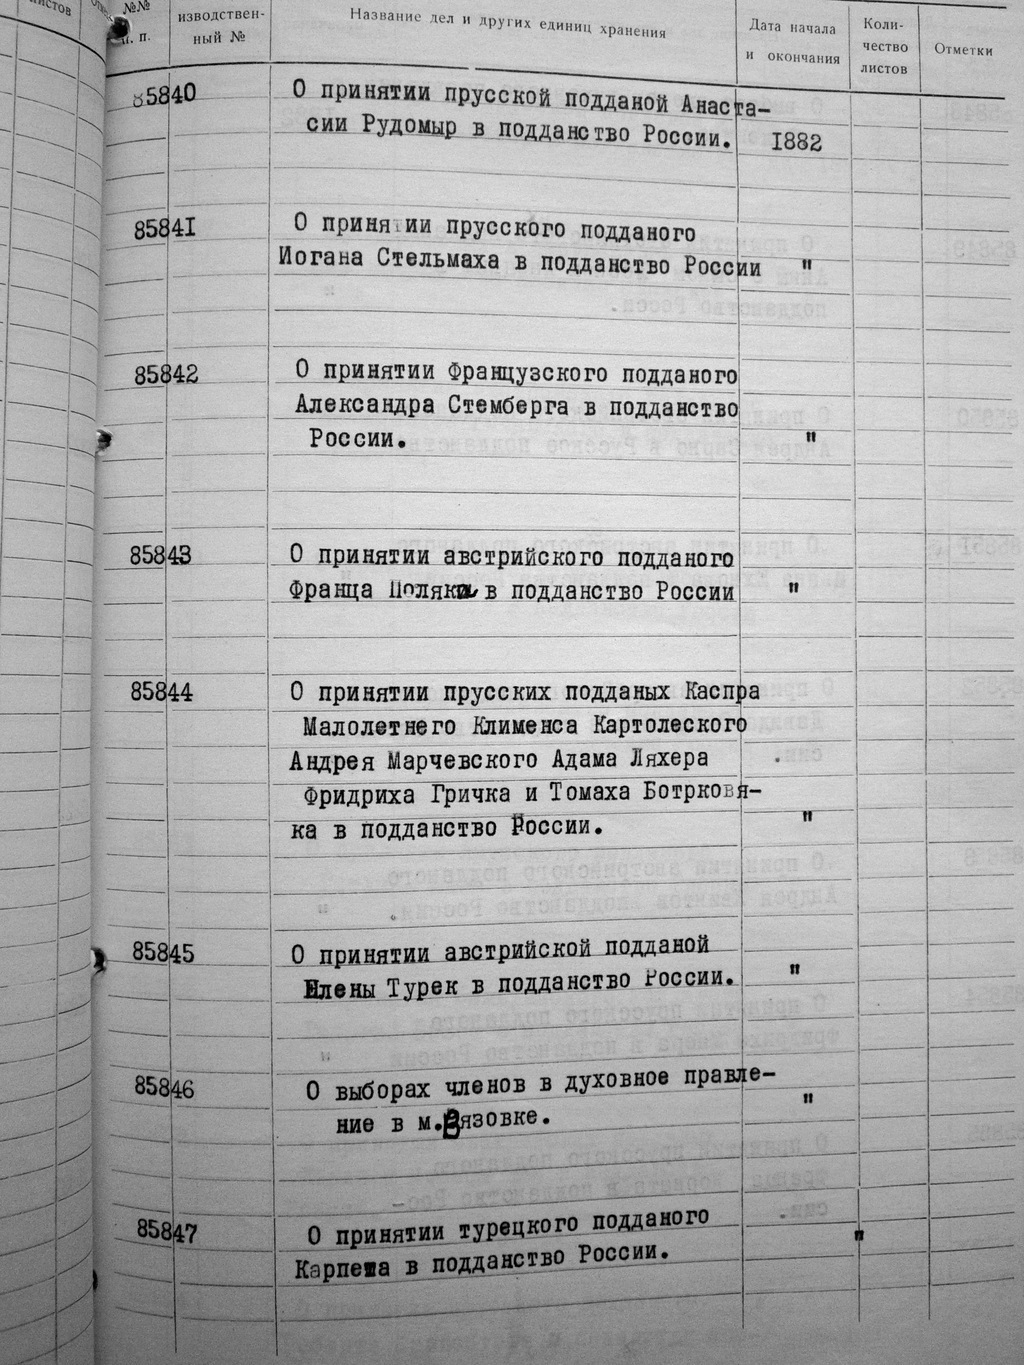 листов
№№
п. п.
изводствен-
ный №
Название дел и других единиц хранения
Дата начала
и окончания
Коли-
чество
листов
Отметки
85840 О принятии прусской подданой Анаста-
сии Рудомыр в подданство России. 1882
85841 О принятии прусского подданого
Иогана Стельмаха в подданство России "
85842 О принятии Французского подданого
Александра Стемберга в подданство
России. "
85843 О принятии австрийского подданого
Франца Поляка в подданство России "
85844 О принятии прусских подданых Каспра
Малолетнего Клименса Картолеского
Андрея Марчевского Адама Ляхера
Фридриха Гричка и Томаха Ботрковя-
ка в подданство России. "
85845 О принятии австрийской подданой
Елены Турек в подданство России. "
85846 О выборах членов в духовное правле-
ние в м.Вязовке. "
85847 О принятии турецкого подданого
в подданство России. "